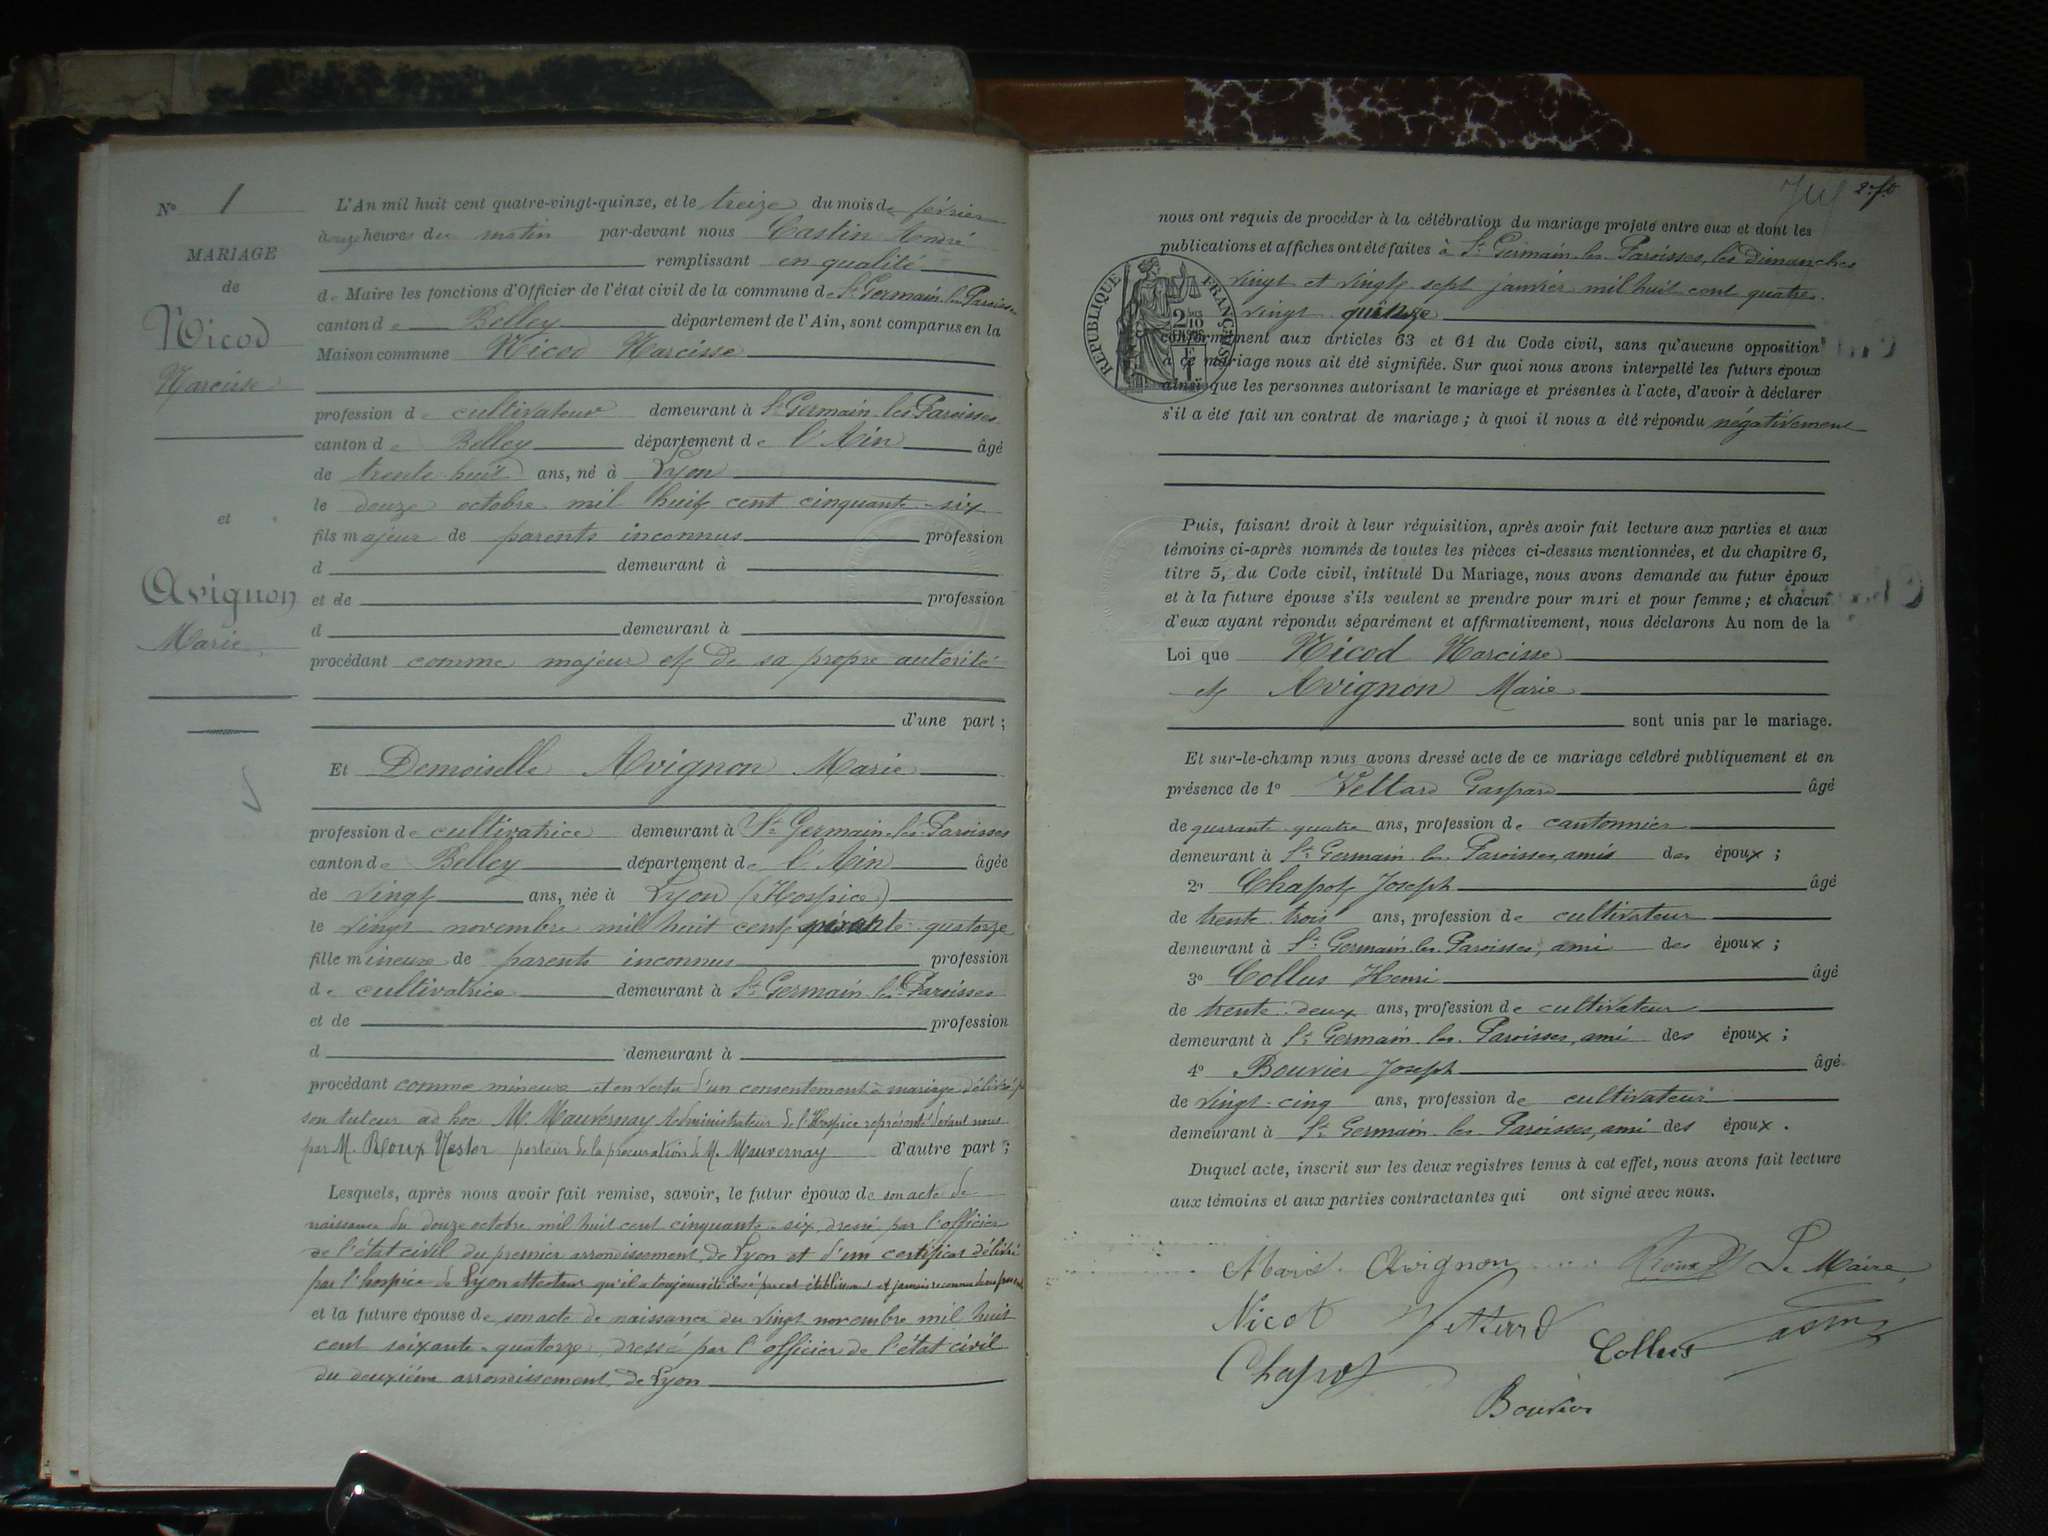 N° 1
MARIAGE
de
Nicod
Narcisse
et
Avignon
Marie
L'An mil huit cent quatre-vingt-quinze, et le treize du mois de février
à onze heures du matin par-devant nous Castin André
remplissant en qualité
de Maire les fonctions d'Officier de l'état civil de la commune de St Germain les Paroisses
canton de Belley département de l'Ain, sont comparus en la
Maison commune Nicod Narcisse
profession de cultivateur demeurant à St Germain les Paroisses
canton de Belley département de l'Ain âgé
de trente huit ans, né à Lyon
le douze octobre mil huit cent cinquante-six
fils majeur de parents inconnus profession
d demeurant à
et de profession
d demeurant à
procédant comme majeur et de sa propre autorité
d'une part ;
Et Demoiselle Avignon Marie
profession de cultivatrice demeurant à St Germain les Paroisses
canton de Belley département de l'Ain âgée
de vingt ans, née à Lyon (Hospice)
le vingt novembre mil huit cent soixante quatorze
fille mineure de parents inconnus profession
de cultivatrice demeurant à St Germain les Paroisses
et de profession
d demeurant à
procédant comme mineure et en vertu d'un consentement à mariage délivré par
son tuteur ad hoc M. Mauvernay Administrateur de l'Hospice représenté devant nous
par M. Rioux Nestor porteur de la procuration de M. Mauvernay d'autre part ;
Lesquels, après nous avoir fait remise, savoir, le futur époux de son acte de
naissance du douze octobre mil huit cent cinquante-six, dressé par l'officier
de l'état civil du premier arrondissement de Lyon et d'un certificat délivré
par l'hospice de Lyon attestant qu'il a toujours été élevé par cet établissement et jamais reconnu
et la future épouse de son acte de naissance du vingt novembre mil huit
cent soixante-quatorze, dressé par l'officier de l'état civil
du deuxième arrondissement de Lyon
nous ont requis de procéder à la célébration du mariage projeté entre eux et dont les
publications et affiches ont été faites à St Germain les Paroisses, les dimanches
vingt et vingt sept janvier mil huit cent quatre
vingt quinze
RÉPUBLIQUE FRANÇAISE
conformément aux articles 63 et 64 du Code civil, sans qu'aucune opposition
à ce mariage nous ait été signifiée. Sur quoi nous avons interpellé les futurs époux
ainsi que les personnes autorisant le mariage et présentes à l'acte, d'avoir à déclarer
s'il a été fait un contrat de mariage ; à quoi il nous a été répondu négativement
Puis, faisant droit à leur réquisition, après avoir fait lecture aux parties et aux
témoins ci-après nommés de toutes les pièces ci-dessus mentionnées, et du chapitre 6,
titre 5, du Code civil, intitulé Du Mariage, nous avons demandé au futur époux
et à la future épouse s'ils veulent se prendre pour mari et pour femme ; et chacun
d'eux ayant répondu séparément et affirmativement, nous déclarons Au nom de la
Loi que Nicod Narcisse
et Avignon Marie
sont unis par le mariage.
Et sur-le-champ nous avons dressé acte de ce mariage célébré publiquement et en
présence de 1° Vettard Gaspard âgé
de quarante quatre ans, profession de cantonnier
demeurant à St Germain les Paroisses, amis des époux ;
2° Chapot Joseph âgé
de trente trois ans, profession de cultivateur
demeurant à St Germain les Paroisses, ami des époux ;
3° Collus Henri âgé
de trente deux ans, profession de cultivateur
demeurant à St Germain les Paroisses, ami des époux ;
4° Bouvier Joseph âgé
de vingt-cinq ans, profession de cultivateur
demeurant à St Germain les Paroisses, ami des époux.
Duquel acte, inscrit sur les deux registres tenus à cet effet, nous avons fait lecture
aux témoins et aux parties contractantes qui ont signé avec nous.
Marie Avignon Rioux N Le Maire
Nicot Vettard Castin
Chapot Collus
Bouvier